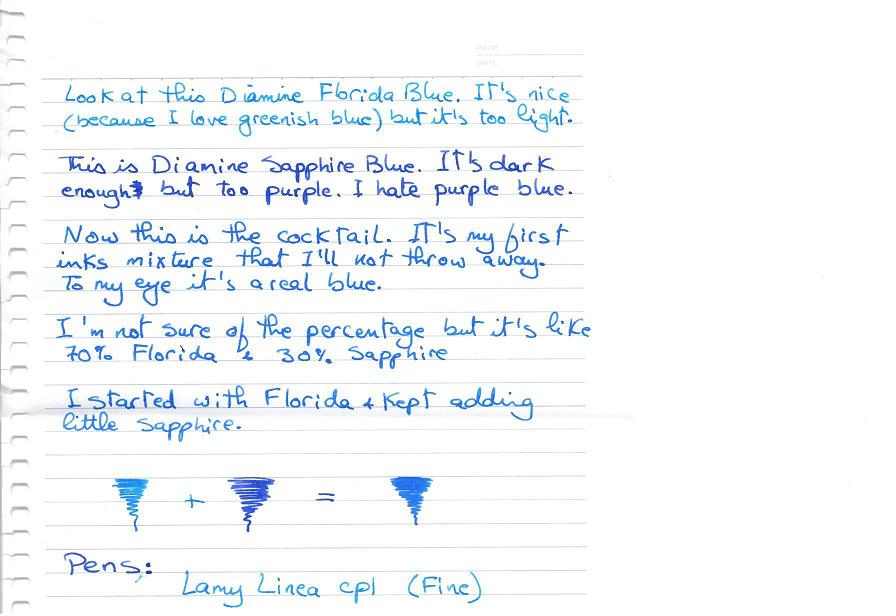 PAGE
DATE
Look at this Diamine Florida Blue. It's nice
(because I love greenish blue) but it's too light.
This is Diamine Sapphire Blue. It's dark
enough but too purple. I hate purple blue.
Now this is the cocktail. It's my first
inks mixture that I'll not throw away.
To my eye it's a real blue.
I'm not sure of the percentage but it's like
70% Florida & 30% Sapphire
I started with Florida & kept adding
little Sapphire.
+ =
Pens:
Lamy Linea cp1 (Fine)